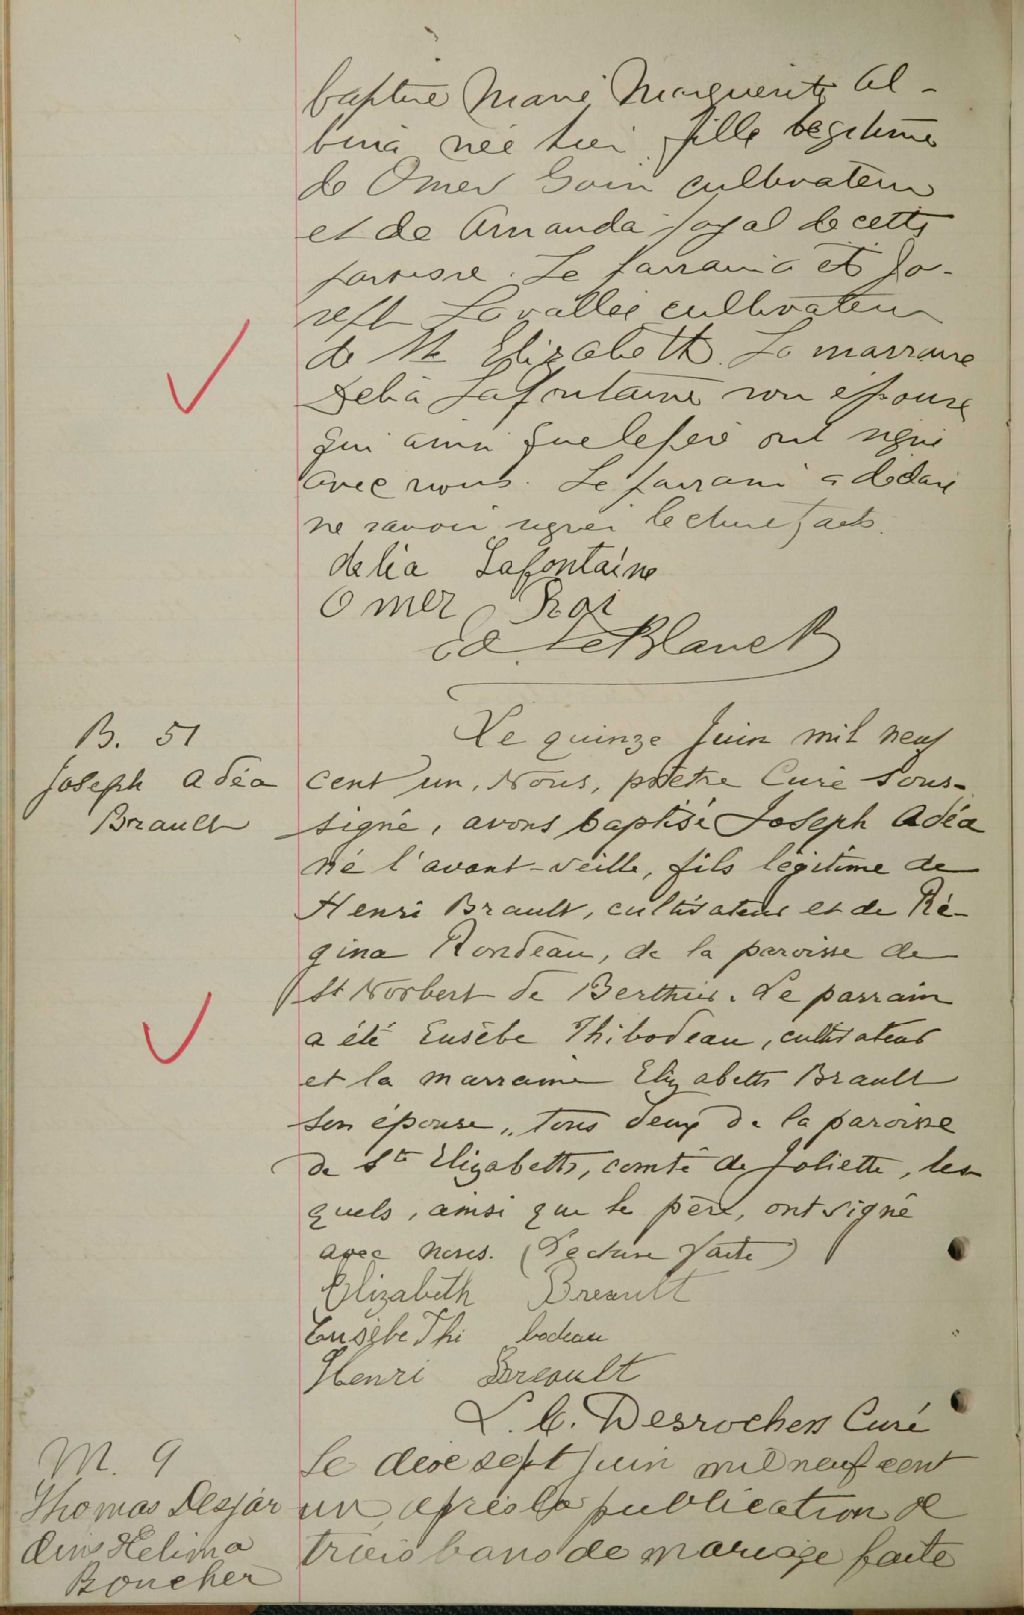 baptisé Marie Marguerite Al-
bina née hier fille légitime
de Omer cultivateur
et de Amanda Joyal de cette
paroisse. Le parrain a été Jo-
seph Lavallée cultivateur
de Ste Elizabeth. La marraine
Delia Lafontaine son épouse
qui ainsi que le père ont signé
avec nous. Le parrain a déclaré
ne savoir signer lecture faite.
delia Lafontaine
Omer Roi
Ed. LeBlanc
B. 51
Joseph Adéa
Brault
Le quinze Juin mil neuf
cent un, Nous, prêtre Curé sous-
signé, avons baptisé Joseph Adéa
né l'avant-veille, fils légitime de
Henri Brault, cultivateur et de Ré-
gina Rondeau, de la paroisse de
St Norbert de Berthier. Le parrain
a été Eusèbe Thibodeau, cultivateur
et la marraine Elizabeth Brault
son épouse, tous deux de la paroisse
de Ste Elizabeth, comté de Joliette, les-
quels, ainsi que le père, ont signé
avec nous. (Lecture faite)
Elizabeth Breault
Eusèbe Thi bodeau
Henri Breault
L. C. Desrochers Curé
M. 9
Thomas Desjar
dins Helima
Boucher
Le dixe sept juin mil neuf cent
un après la publication de
trois bans de mariage faite